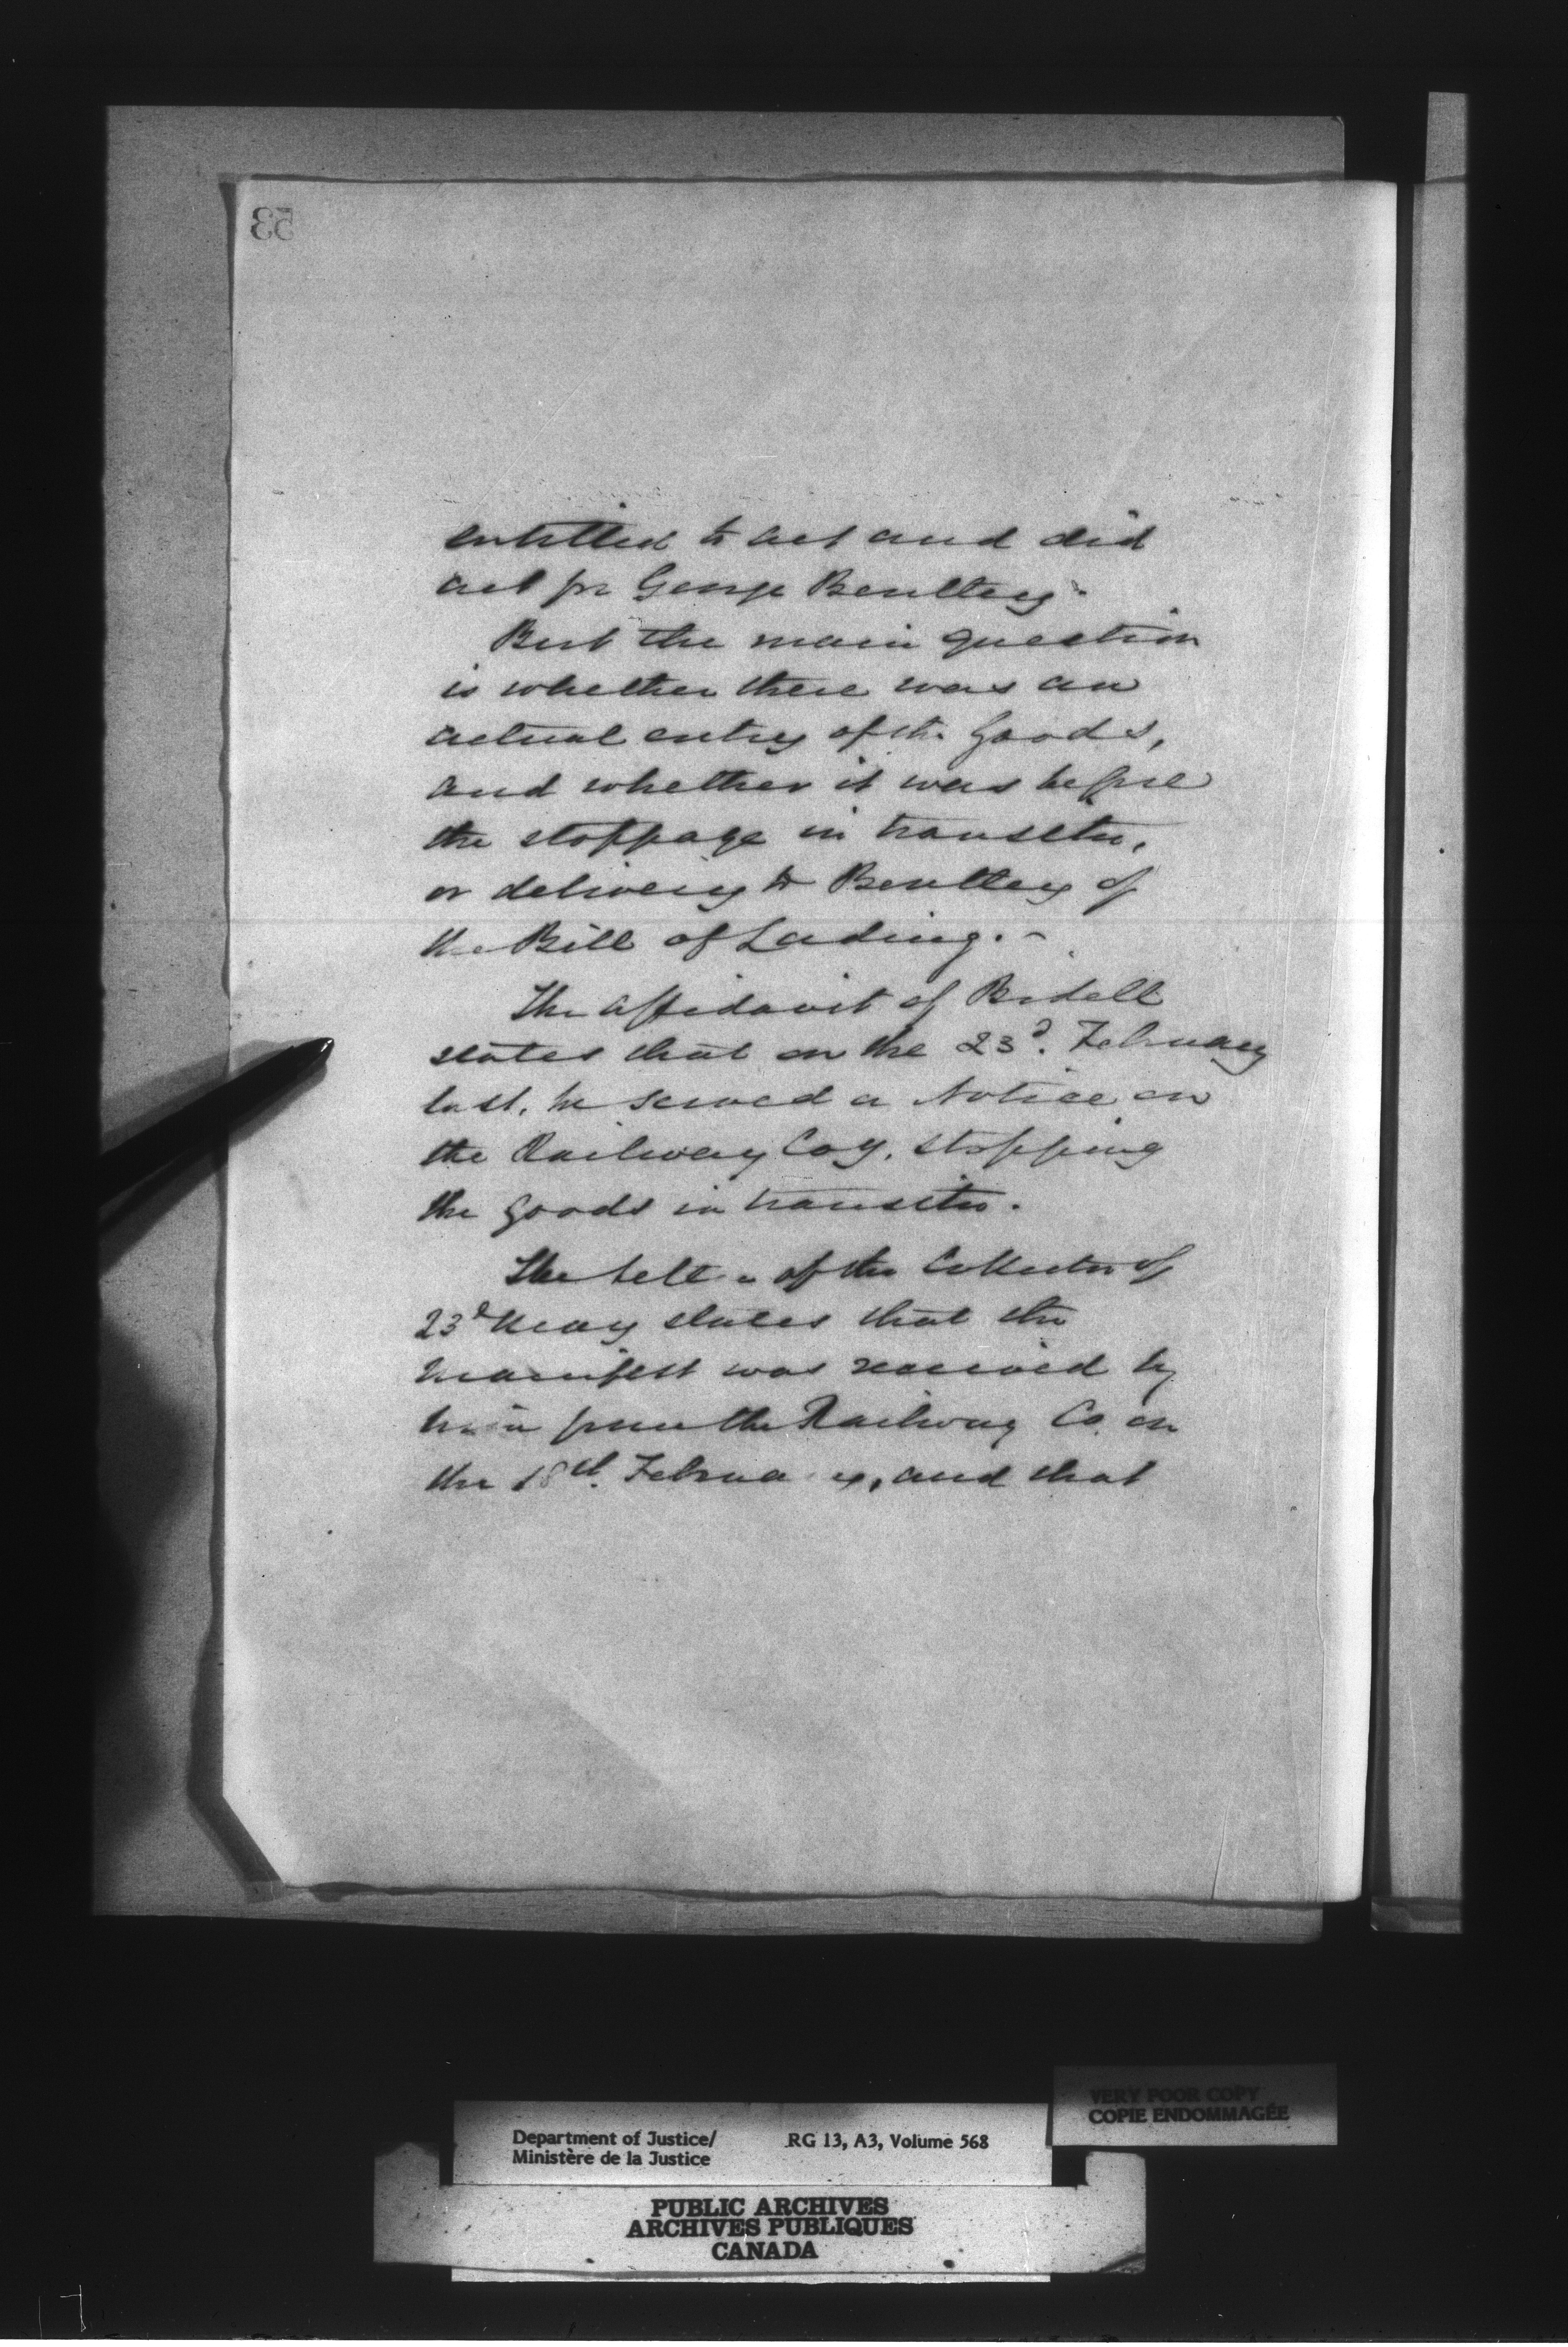 53
entitled to act and did
act for George Bentley.
But the main question
is whether there was an
actual entry of the Goods,
and whether it was before
the stoppage in transitu,
or delivery to Bentley of
the Bill of Lading. -
The affidavit of
states that on the 23d. February
last, he served a Notice on
the Railway Coy. stopping
the goods in transitu.
The letter of the Collector of
23d May states that the
manifest was received by
him from the Railway Co. on
the 18th. February, and that
VERY POOR COPY
COPIE ENDOMMAGÉE
Department of Justice/ RG 13, A3, Volume 568
Ministère de la Justice
PUBLIC ARCHIVES
ARCHIVES PUBLIQUES
CANADA